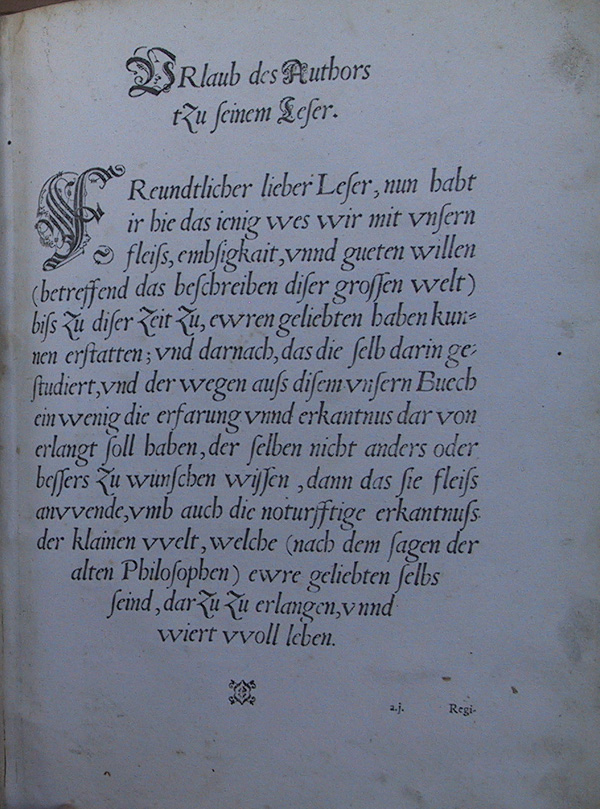 VRlaub des Authors
tzu ſeinem Leſer.
FReundtlicher lieber Leſer, nun habt
ir hie das ienig wes wir mit vnſern
fleiſs, embſigkait, vnnd gueten willen
(betreffend das beſchreiben diſer groſſen welt)
biſs zu diſer zeit zu, ewren geliebten haben kun-
nen erſtatten; vnd darnach, das die ſelb darin ge-
ſtudiert, vnd der wegen auſs diſem vnſern Buech
ein wenig die erfarung vnnd erkantnus dar von
erlangt ſoll haben, der ſelben nicht anders oder
beſſers zu wunſchen wiſſen, dann das ſie fleiſs
anvvende, vmb auch die noturfftige erkantnuſs
der klainen vvelt, welche (nach dem ſagen der
alten Philoſophen) ewre geliebten ſelbs
ſeind, dar zu zu erlangen, vnnd
wiert vvoll leben.
a.j. Regi-